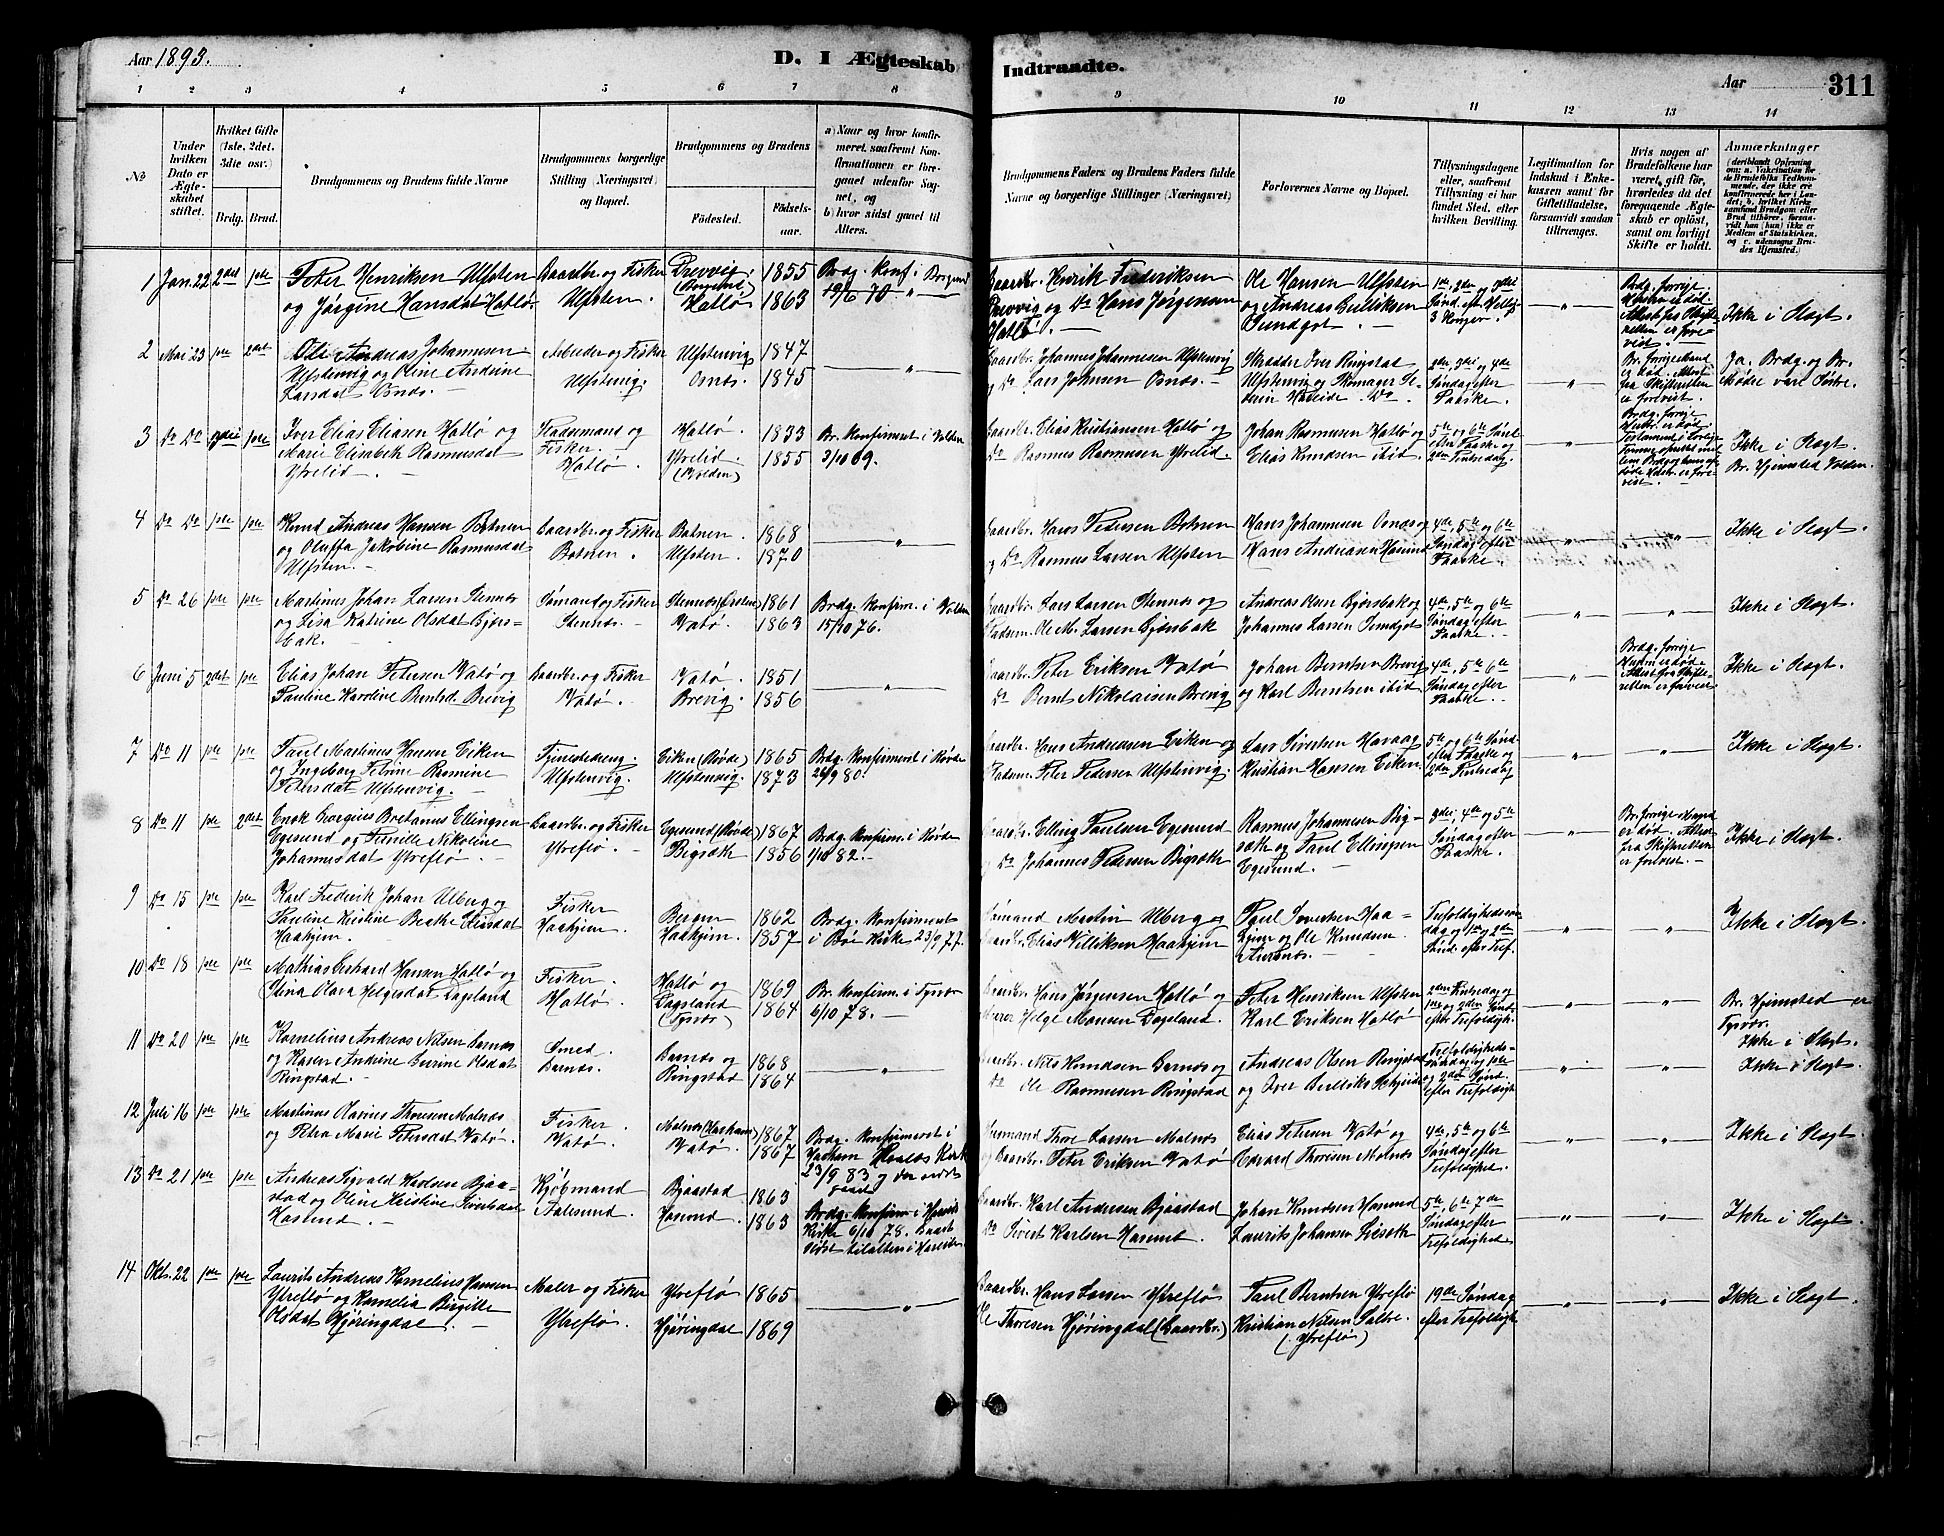 Aar 1893.
D. I Ægteskab Indtraadte.
Aar
311
1 2 3 4 5 6 7 8 9 10 11 12 13 14
No
Under hvilken Dato er Ægteskabet stiftet.
Hvilket Gifte (1ste, 2det, 3die osv.)
Brdg. Brud.
Brudgommens og Brudens fulde Navne
Brudgommens borgerlige Stilling (Næringsvei) og Bopæl.
Brudgommens og Brudens
Födested.
Födselsaar.
a) Naar og hvor konfirmeret, saafremt Konfirmationen er foregaaet udenfor Sognet, og
b) hvor sidst gaaet til Alters.
Brudgommens Faders og Brudens Faders fulde Navne og borgerlige Stillinger (Næringsvei)
Forlovernes Navne og Bopæl.
Tillysningsdagene eller, saafremt Tillysning ei har fundet Sted, efter hvilken Bevilling.
Legitimation for Indskud i Enkekassen samt for Giftetilladelse, forsaavidt saadan tiltrænges.
Hvis nogen af Brudefolkene har været gift för, hvorledes da det foregaaende Ægteskab er oplöst, samt om lovligt Skifte er holdt.
Anmærkninger
1 Jan. 22 2det 1ste
Peter Henriksen Ulfsten
og Jørgine Hansdat Hatlø.
Gaardbr. og Fisker
Ulfsten.
Brevvig (Borgund)
Hatlø
1855
1863
Brdg. Konf. i Borgund
Gaardbr. Henrik Frederiksen
Brevvig og Do Hans Jørgensen
Hatlø.
Ole Hansen Ulfsten
og Andreas Bulliksen
Sundgot.
Ikke i Slægt.
2 Mai 23 1ste 2det
Ole Andreas Johannesen
Ulfstenvig og Oline Andrine
Larsdat Osnæs.
Arbeider og Fisker
Ulfstenvig.
Ulfstenvig
Osnæs.
1847
1845
Gaardbr. Johannes Johannesen Ulfstenvig
og Do Lars Johnsen Osnæs.
Skrædder Iver Ringstad
Ulfstenvig og
2den, 3die og 4de
Søndag efter
Paaske.
Ja. Brdg. og Br.
Mødre vare Søstre.
3 Do Do 3die 1ste
Iver Elias Eliasen Hatlø og
Marie Elisabeth Rasmusdat
Ytrelid.
Fisker.
Hatlø.
Hatlø
Ytrelid.
(Volden)
1833
1855
Br. Konfirmeret i Volden
3/10 69.
Gaardbr. Elias Kristiansen Hatlø og
Do Rasmus Rasmusen Ytrelid.
Johan Rasmusen Hatlø og
Elias Knudsen ibid.
5te og 6te Sønd.
efter Paaske og
2den Pintsedag.
Ikke i Slægt.
Br. Hjemsted Volden.
4 Do Do 1ste 1ste
Knud Andreas Hansen Botnen
og Oluffa Jakobine Rasmusdat
Ulfsten.
Gaardbr. og Fisker
Botnen.
Botnen.
Ulfsten
1868
1870
Gaardbr. Hans Pedersen Botnen
og Do Rasmus Larsen Ulfsten
Hans Johannesen Osnæs og
Hans Andreasen Hasund
4de, 5te og 6te
Søndag efter
Paaske.
Ikke i Slægt.
5 Do 26 1ste 1ste
Martinus Johan Larsen Stennæs
og Lisa Katrine Olsdat Bjørs-
bak.
Sømand og Fisker
Stennæs.
Stennæs (Ørsten)
Vatø.
1861
1863
Brdg. Konfirm. i Volden
15/10 76.
Gaardbr. Lars Larsen Stennæs og
Pladsm. Ole M. Larsen Bjørsbak
Andreas Olsen Bjørsbak og
Johannes Larsen Sundgot
4de, 5te og 6te
Søndag efter
Paaske.
Ikke i Slægt.
6 Juni 5 2det 1ste
Elias Johan Petersen Vatø og
Pauline Karoline Berntsd. Brevig
Gaardbr. og Fisker
Vatø.
Vatø.
Brevig.
1851
1856
Gaardbr. Peter Eriksen Vatø
Do Bernt Nikolaisen Brevig
Johan Berntsen Brevig
og Karl Berntsen ibid.
4de, 5te 6te
Søndag efter
Paaske.
Ikke i Slægt.
7 Do 11 1ste 1ste
Paul Martinus Hansen Eiken
og Ingeborg Petrine Rasmine
Petersdat Ulfstenvig.
Tjenestedreng.
Ulfstenvig.
Eiken (Røvde)
Ulfstenvig.
1865
1873
Brdg. Konfirmeret i Røvde
26/9 80.
Gaardbr. Hans Andreasen Eiken og
Pladsm. Peter Pedersen Ulfstenvig.
Lars Sivertsen Havaag
Kristian Hansen Eiken.
5te og 6te Sønd.
efter Paaske og
2den Pintsedag
Ikke i Slægt.
8 Do 11 1ste 2det
Enok Georgius Bretanus Ellingsen
Egesund og Pernille Nikoline
Johannesdat Ytreflø.
Gaardbr. og Fisker
Ytreflø.
Egesund (Røvde)
Bigsæth
1867
1856
Brdg. Konfirm. i Røvde
1/10 82.
Gaardbr. Elling Paulsen Egesund
og Do Johannes Pedersen Bigsæth
Rasmus Johannesen Big-
sæth og Paul Ellingsen
Egesund.
3die, 4de og 5te
Søndag efter
Paaske.
Br. forrige Mand
er død. Attest
fra Skifteretten
er forevist.
Ikke i Slægt.
9 Do 15 1ste 1ste
Karl Frederik Johan Ulberg og
Pauline Kristine Beathe Eliasdat
Haakjem.
Fisker
Haakjem.
Bergen
Haakjem.
1862
1857
Brdg. Konfirmeret
i Bøe Kirke 23/9 77.
Sømand Martin Ulberg og
Gaardbr. Elias Villiksen Haakjem
Paul Sivertsen Haa-
kjem og Ole Knudsen
Aurenæs.
Trefoldigheds-
dag og 1ste og 2den
Sønd. efter Tref.
Ikke i Slægt.
10 Do 18 1ste 1ste
Mathias Gerhard Hansen Hatlø og
Stina Olava Helgesdat Dagsland
Fisker.
Hatlø.
Hatlø og
Dagsland
(Tysvær)
1869
1864
Br. Konfirm. i Tysvær
6/10 78.
Gaardbr. Hans Jørgensen Hatlø og
Helge Monsen Dagsland.
Peter Henriksen Ulfsten
Karl Eriksen Hatlø
2den Pintsedag og
1ste og 2den Sønd.
efter Trefoldigh.
Br. Hjemsted er
Tysvær.
Ikke i Slægt.
11 Do 20 1ste 1ste
Kornelius Andreas Nilsen Garnæs
og Karen Andrine Severine Olsdat
Ringstad.
Smed.
Garnæs.
Garnæs og
Ringstad
1868
1864
Gaardbr. Nils Knudsen Garnæs og
Do Ole Rasmusen Ringstad
Andreas Olsen Ringstad
Trefoldigheds-
søndag og 1ste
og 2den Sønd.
efter Trefoldigh.
Ikke i Slægt.
12 Juli 16 1ste 1ste
Martinus Olavius Thoresen Malnæs
og Petra Marie Petersdat Vatø.
Fisker.
Vatø.
Malnæs (Harham)
Vatø.
1867
1867
Brdg. Konfirmeret i
Harham
23/9 83
Thore Larsen Malnæs
og Gaardbr. Peter Eriksen Vatø
Elias Petersen Vatø og
Edvard Thoresen Malnæs
4de, 5te og 6te
Søndag efter
Trefoldighed.
Ikke i Slægt.
13 Do 21 1ste 1ste
Andreas Sigvald Karlsen Bjaa-
stad og Oline Kristine Sivertsdat
Hasund.
Kjøbmand
Aalesund.
Bjaastad
Hasund.
1863
1863
Brdg. Konfirm. i
Kirke 6/10 78.
Gaardbr. Karl Andersen Bjaastad
Do Sivert Karlsen Hasund.
Johan Knudsen Hasund
Laurits Johansen
5te, 6te 7de
Søndag efter
Trefoldighed
Ikke i Slægt.
14 Okt. 22 1ste 1ste
Laurits Andreas Kornelius Hansen
Ytreflø og Kornelia Birgitte
Olsdat Hjøringdal.
Maler og Fisker
Ytreflø.
Ytreflø
Hjøringdal
1865
1869
Gaardbr. Hans Larsen Ytreflø
Ole Thoresen Hjøringdal (Gaardbr.)
Paul Berntsen Ytreflø
Kristian Nilsen Sætre.
(Ytreflø)
19de Søndag
efter Trefoldigh.
Ikke i Slægt.